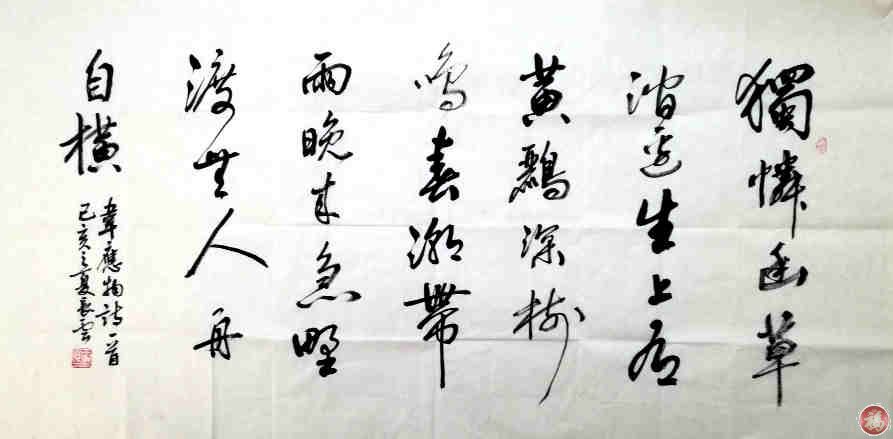 獨憐幽草
澗邊生上有
黃鸝深樹
鳴春潮帶
雨晚來急野
渡無人舟
自橫
韋應物詩一首
己亥之夏長雲
福